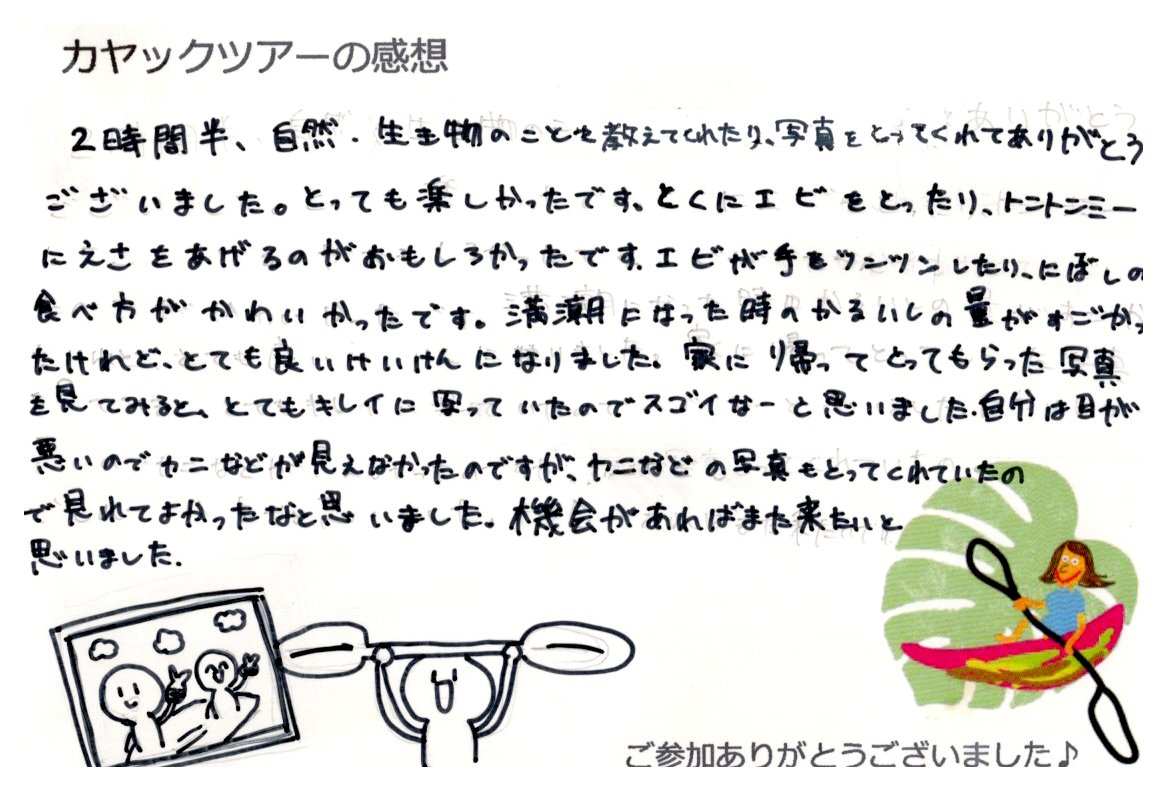 カヤックツアーの感想
2時間半、自然・生き物のことを教えてくれたり、写真をとってくれてありがとう
ございました。とっても楽しかったです、とくにエビをとったり、トントンミー
にえさをあげるのがおもしろかったです。エビが手をツンツンしたり、にぼしの
食べ方がかわいかったです。満潮になった時のかるいしの量がすごかっ
たけれど、とても良いけいけんになりました。家に帰ってとってもらった写真
を見てみると、とてもキレイに写っていたのでスゴイなーと思いました。自分は目が
悪いのでカニなどが見えなかったのですが、カニなどの写真もとってくれていたの
で見れてよかったなと思いました。機会があればまた来たいと
思いました。
ご参加ありがとうございました♪